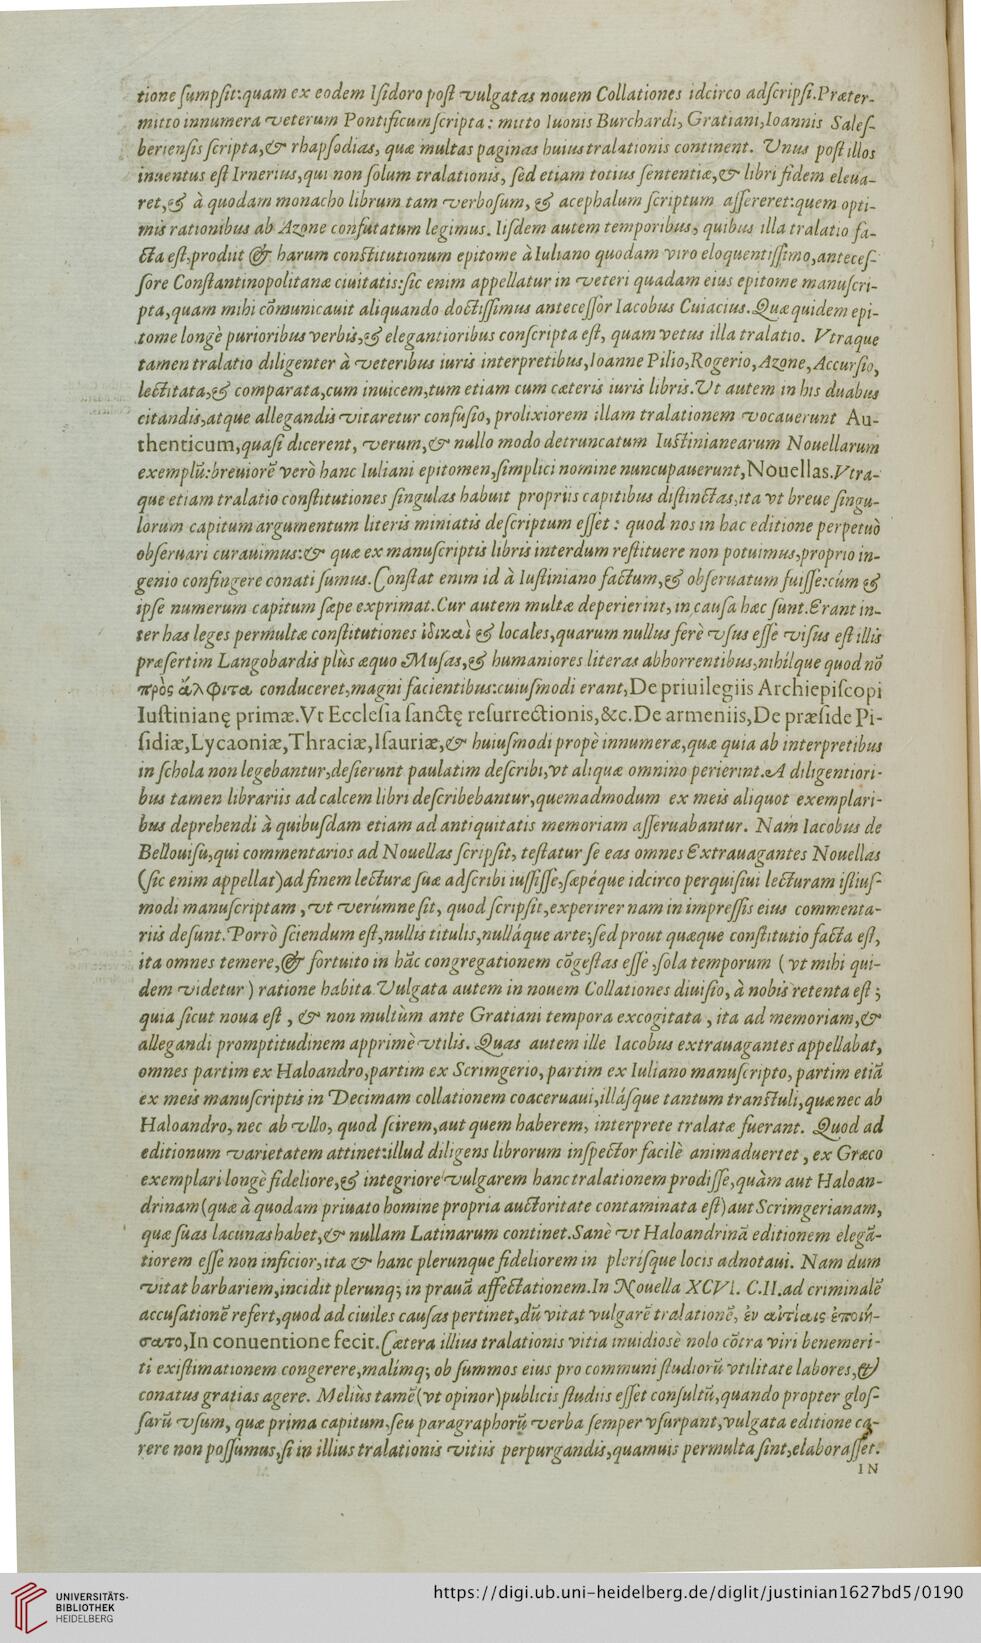 tione ſumpſit:quam ex eodem Iſidoro poſt vulgatas nouem Collationes idcirco adſcripſi.Præter-
mitto innumera veterum Pontificum ſcripta: mitto Iuonis Burchardi, Gratiani,Ioannis Saleſ-
berienſis ſcripta,& rhapſodias, quæ multas paginas huius tralationis continent. Vnus poſt illos
inuentus eſt Irnerius,qui non ſolum tralationis, ſed etiam totius ſententiæ,& libri fidem eleua-
ret,& à quodam monacho librum tam verboſum, & acephalum ſcriptum aſſereret:quem opti-
mis rationibus ab Azone confutatum legimus. Iiſdem autem temporibus, quibus illa tralatio fa-
cta eſt,prodiit & harum conſtitutionum epitome à Iuliano quodam viro eloquentiſſimo,anteceſ-
ſore Conſtantinopolitanæ ciuitatis:ſic enim appellatur in veteri quadam eius epitome manuſcri-
pta,quam mihi cõmunicauit aliquando doctiſſimus anteceſſor Iacobus Cuiacius.Quæ quidem epi-
tome longè purioribus verbis,& elegantioribus conſcripta eſt, quam vetus illa tralatio. Vtraque
tamen tralatio diligenter à veteribus iuris interpretibus,Ioanne Pilio,Rogerio,Azone,Accurſio,
lectitata,& comparata,cum inuicem,tum etiam cum cæteris iuris libris.Vt autem in his duabus
citandis,atque allegandis vitaretur confuſio, prolixiorem illam tralationem vocauerunt Au-
thenticum,quaſi dicerent, verum,& nullo modo detruncatum Iuſtinianearum Nouellarum
exemplũ:breuiorẽ verò hanc Iuliani epitomen,ſimplici nomine nuncupauerunt,Nouellas.Vtra-
que etiam tralatio conſtitutiones ſingulas habuit propriis capitibus diſtinctas,ita vt breue ſingu-
lorum capitum argumentum literis miniatis deſcriptum eſſet : quod nos in hac editione perpetuò
obſeruari curauimus:& quæ ex manuſcriptis libris interdum reſtituere non potuimus,proprio in-
genio confingere conati ſumus.Conſtat enim id à Iuſtiniano factum,& obſeruatum fuiſſe:cúm &
ipſe numerum capitum ſæpe exprimat.Cur autem multæ deperierint, in cauſa hæc ſunt.Erant in-
ter has leges permultæ conſtitutiones ἰδικαὶ & locales,quarum nullus ferè vſus eſſe viſus eſt illis
præſertim Langobardis plùs æquo Muſas,& humaniores literas abhorrentibus,nihílque quod nõ
πρὸς ἄλφιτα conduceret,magni facientibus:cuiuſmodi erant,De priuilegiis Archiepiſcopi
Iuſtinianę primæ.Vt Eccleſia ſanctę reſurrectionis,&c.De armeniis,De præſide Pi-
ſidiæ,Lycaoniæ,Thraciæ,Iſauriæ,& huiuſmodi propè innumeræ,quæ quia ab interpretibus
in ſchola non legebantur,deſierunt paulatim deſcribi,vt aliquæ omnino perierint.A diligentiori-
bus tamen librariis ad calcem libri deſcribebantur,quemadmodum ex meis aliquot exemplari-
bus deprehendi à quibuſdam etiam ad antiquitatis memoriam aſſeruabantur. Nam Iacobus de
Bellouiſu,qui commentarios ad Nouellas ſcripſit, teſtatur ſe eas omnes Extrauagantes Nouellas
(ſic enim appellat)ad finem lecturæ ſuæ adſcribi iuſſiſſe,ſæpéque idcirco perquiſiui lecturam iſtiuſ-
modi manuſcriptam , vt verúmne ſit, quod ſcripſit,experirer nam in impreſſis eius commenta-
riis deſunt.Porrò ſciendum eſt,nullis titulis,nulláque arte;ſed prout quæque conſtitutio facta eſt,
ita omnes temere,& fortuito in hãc congregationem cõgeſtas eſſe ,ſola temporum ( vt mihi qui-
dem videtur ) ratione habita Vulgata autem in nouem Collationes diuiſio, à nobis retenta eſt ;
quia ſicut noua eſt , & non multùm ante Gratiani tempora excogitata , ita ad memoriam,&
allegandi promptitudinem apprimè vtilis. Quas autem ille Iacobus extrauagantes appellabat,
omnes partim ex Haloandro,partim ex Scrimgerio, partim ex Iuliano manuſcripto, partim etiã
ex meis manuſcriptis in Decimam collationem coaceruaui,illáſque tantum tranſtuli,quæ nec ab
Haloandro, nec ab vllo, quod ſcirem,aut quem haberem, interprete tralatæ fuerant. Quod ad
editionum varietatem attinet:illud diligens librorum inſpector facilè animaduertet , ex Græco
exemplari longè fideliore,& integriore vulgarem hanc tralationem prodiſſe,quàm aut Haloan-
drinam(quæ à quodam priuato homine propria auctoritate contaminata eſt)aut Scrimgerianam,
quæ ſuas lacunas habet,& nullam Latinarum continet.Sanè vt Haloandrinã editionem elegã-
tiorem eſſe non inficior,ita & hanc plerunque fideliorem in pleriſque locis adnotaui. Nam dum
vitat barbariem,incidit plerunq; in prauã affectationem.In Nouella XCVI. C.II.ad criminalẽ
accuſationẽ refert,quod ad ciuiles cauſas pertinet,dũ vitat vulgarẽ tralationẽ, ἐν αἰτίαις ἐποιή-
σατο,In conuentione fecit.Cætera illius tralationis vitia inuidiosè nolo cõtra viri benemeri-
ti exiſtimationem congerere,malímq; ob ſummos eius pro communi ſtudiorũ vtilitate labores,&
conatus gratias agere. Meliùs tamẽ(vt opinor)publicis ſtudiis eſſet conſultũ,quando propter gloſ-
ſarũ vſum, quæ prima capitum,ſeu paragraphorũ verba ſemper vſurpant,vulgata editione ca-
rere non poſſumus,ſi in illius tralationis vitiis perpurgandis,quamuis permulta ſint,elaboraſſet.
IN
UNIVERSITÄTS-
BIBLIOTHEK
HEIDELBERG
https://digi.ub.uni-heidelberg.de/diglit/justinian1627bd5/0190